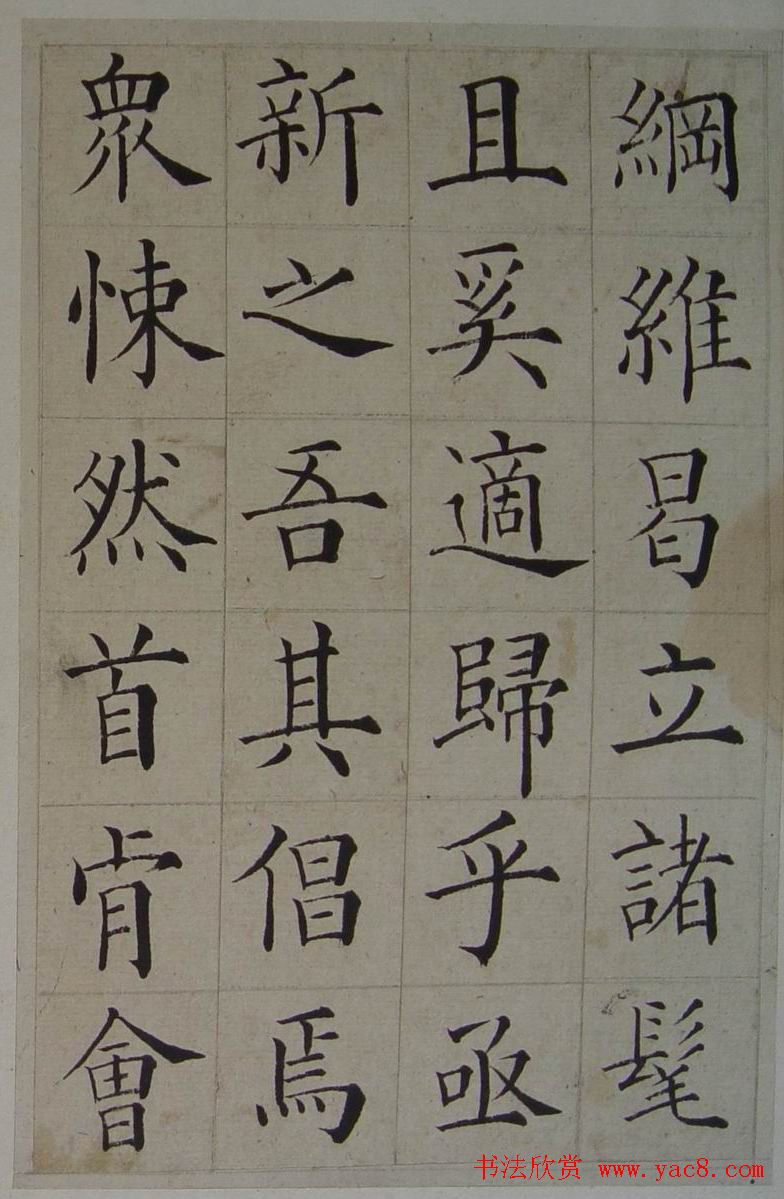 綱維曷立諸髦
且奚適歸乎亟
新之吾其倡焉
眾悚然首肯會
书法欣赏 www.yac8.com